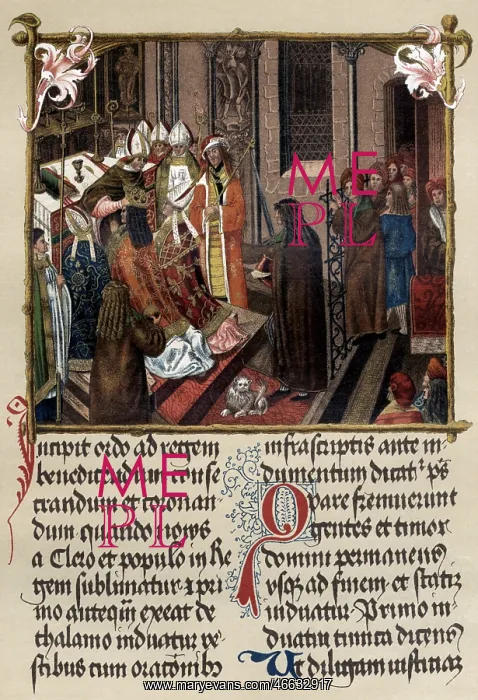 ME
PL
Incipit ordo ad regem
conse
crandum et coronan
dum quando novus
a Clero et populo in Re
gem sublimatur et pri
mo anteqm exeat de
thalamo induatur ve
stibus cum orationibus
infrascriptis ante in-
dumentum dicatr ps
Quare fremuerunt
gentes et timor
domini permanens
usq ad finem et
induatur. Primo in-
duatur tunica dicens
Ut diligam
ME
PL
www.maryevans.com/46632917